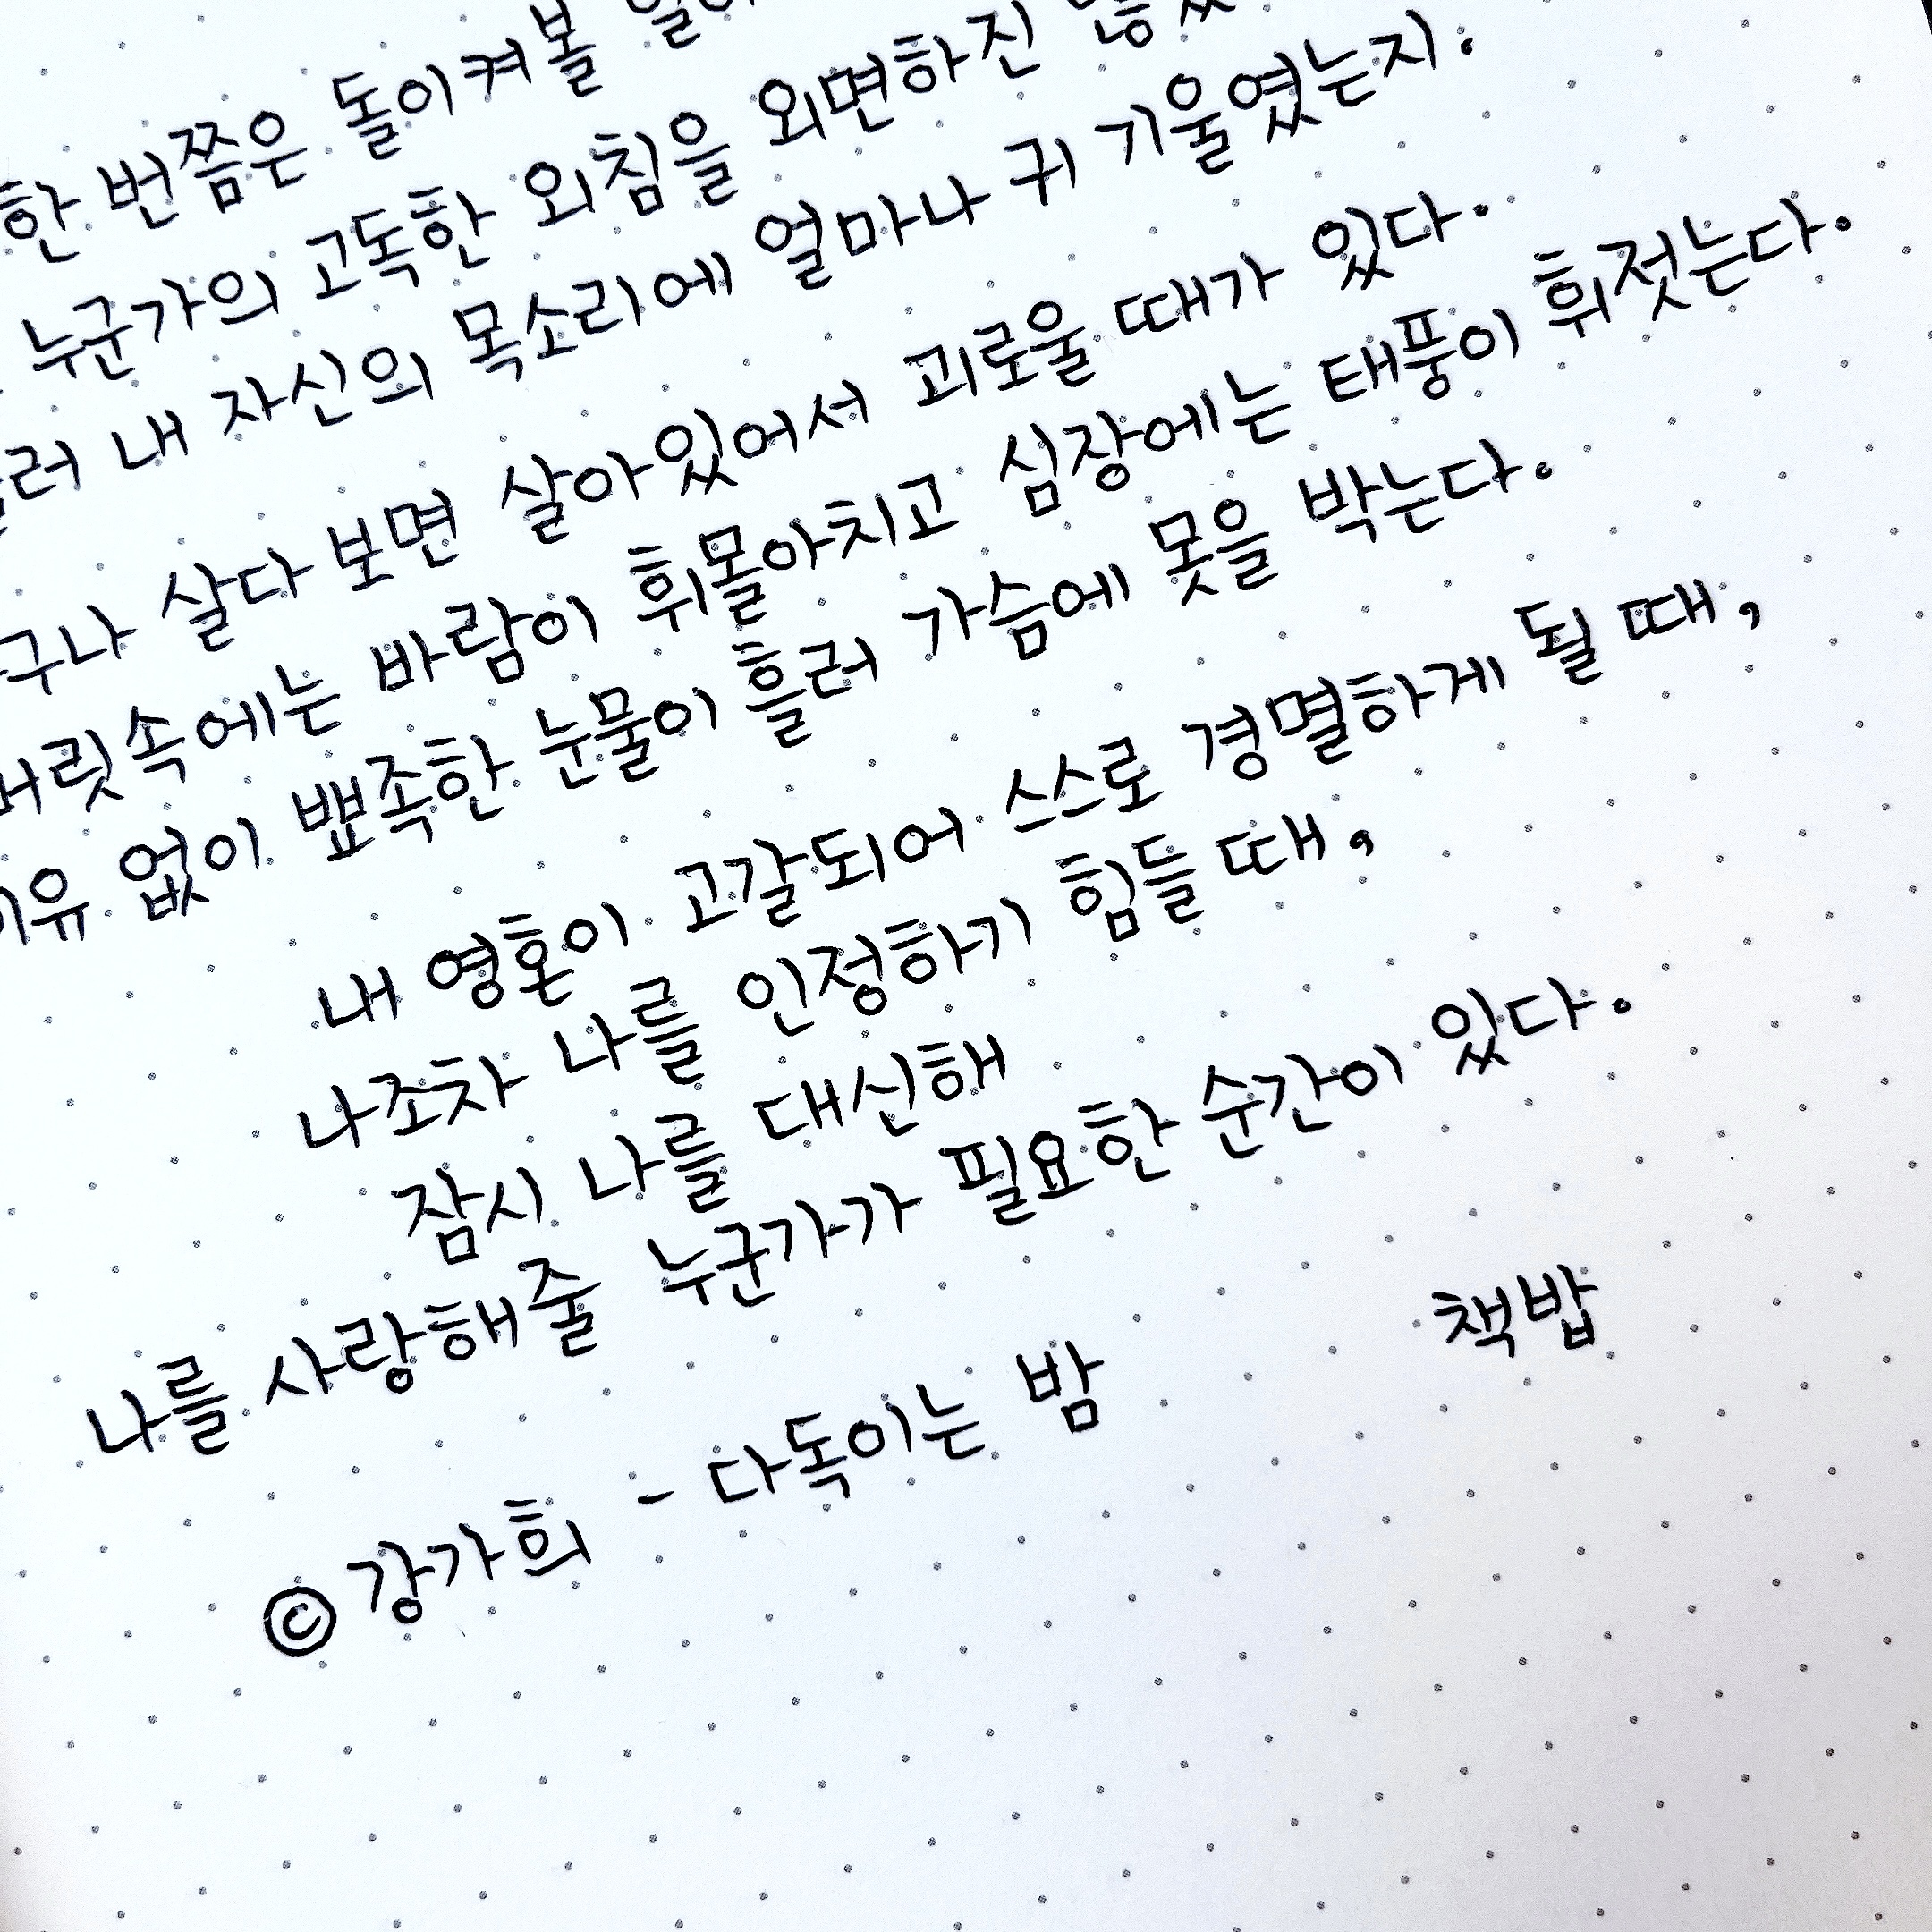 한 번쯤은 돌이켜볼
누군가의 고독한 외침을 외면하진
내 자신의 목소리에 얼마나 귀 기울였는지.
살다 보면 살아있어서 괴로울 때가 있다.
머릿속에는 바람이 휘몰아치고 심장에는 태풍이 휘젓는다.
이유 없이 뾰족한 눈물이 흘러 가슴에 못을 박는다.
내 영혼이 고갈되어 스스로 경멸하게 될 때,
나조차 나를 인정하기 힘들 때,
잠시 나를 대신해
나를 사랑해줄 누군가가 필요한 순간이 있다.
책밥
© 강가희 - 다독이는 밤